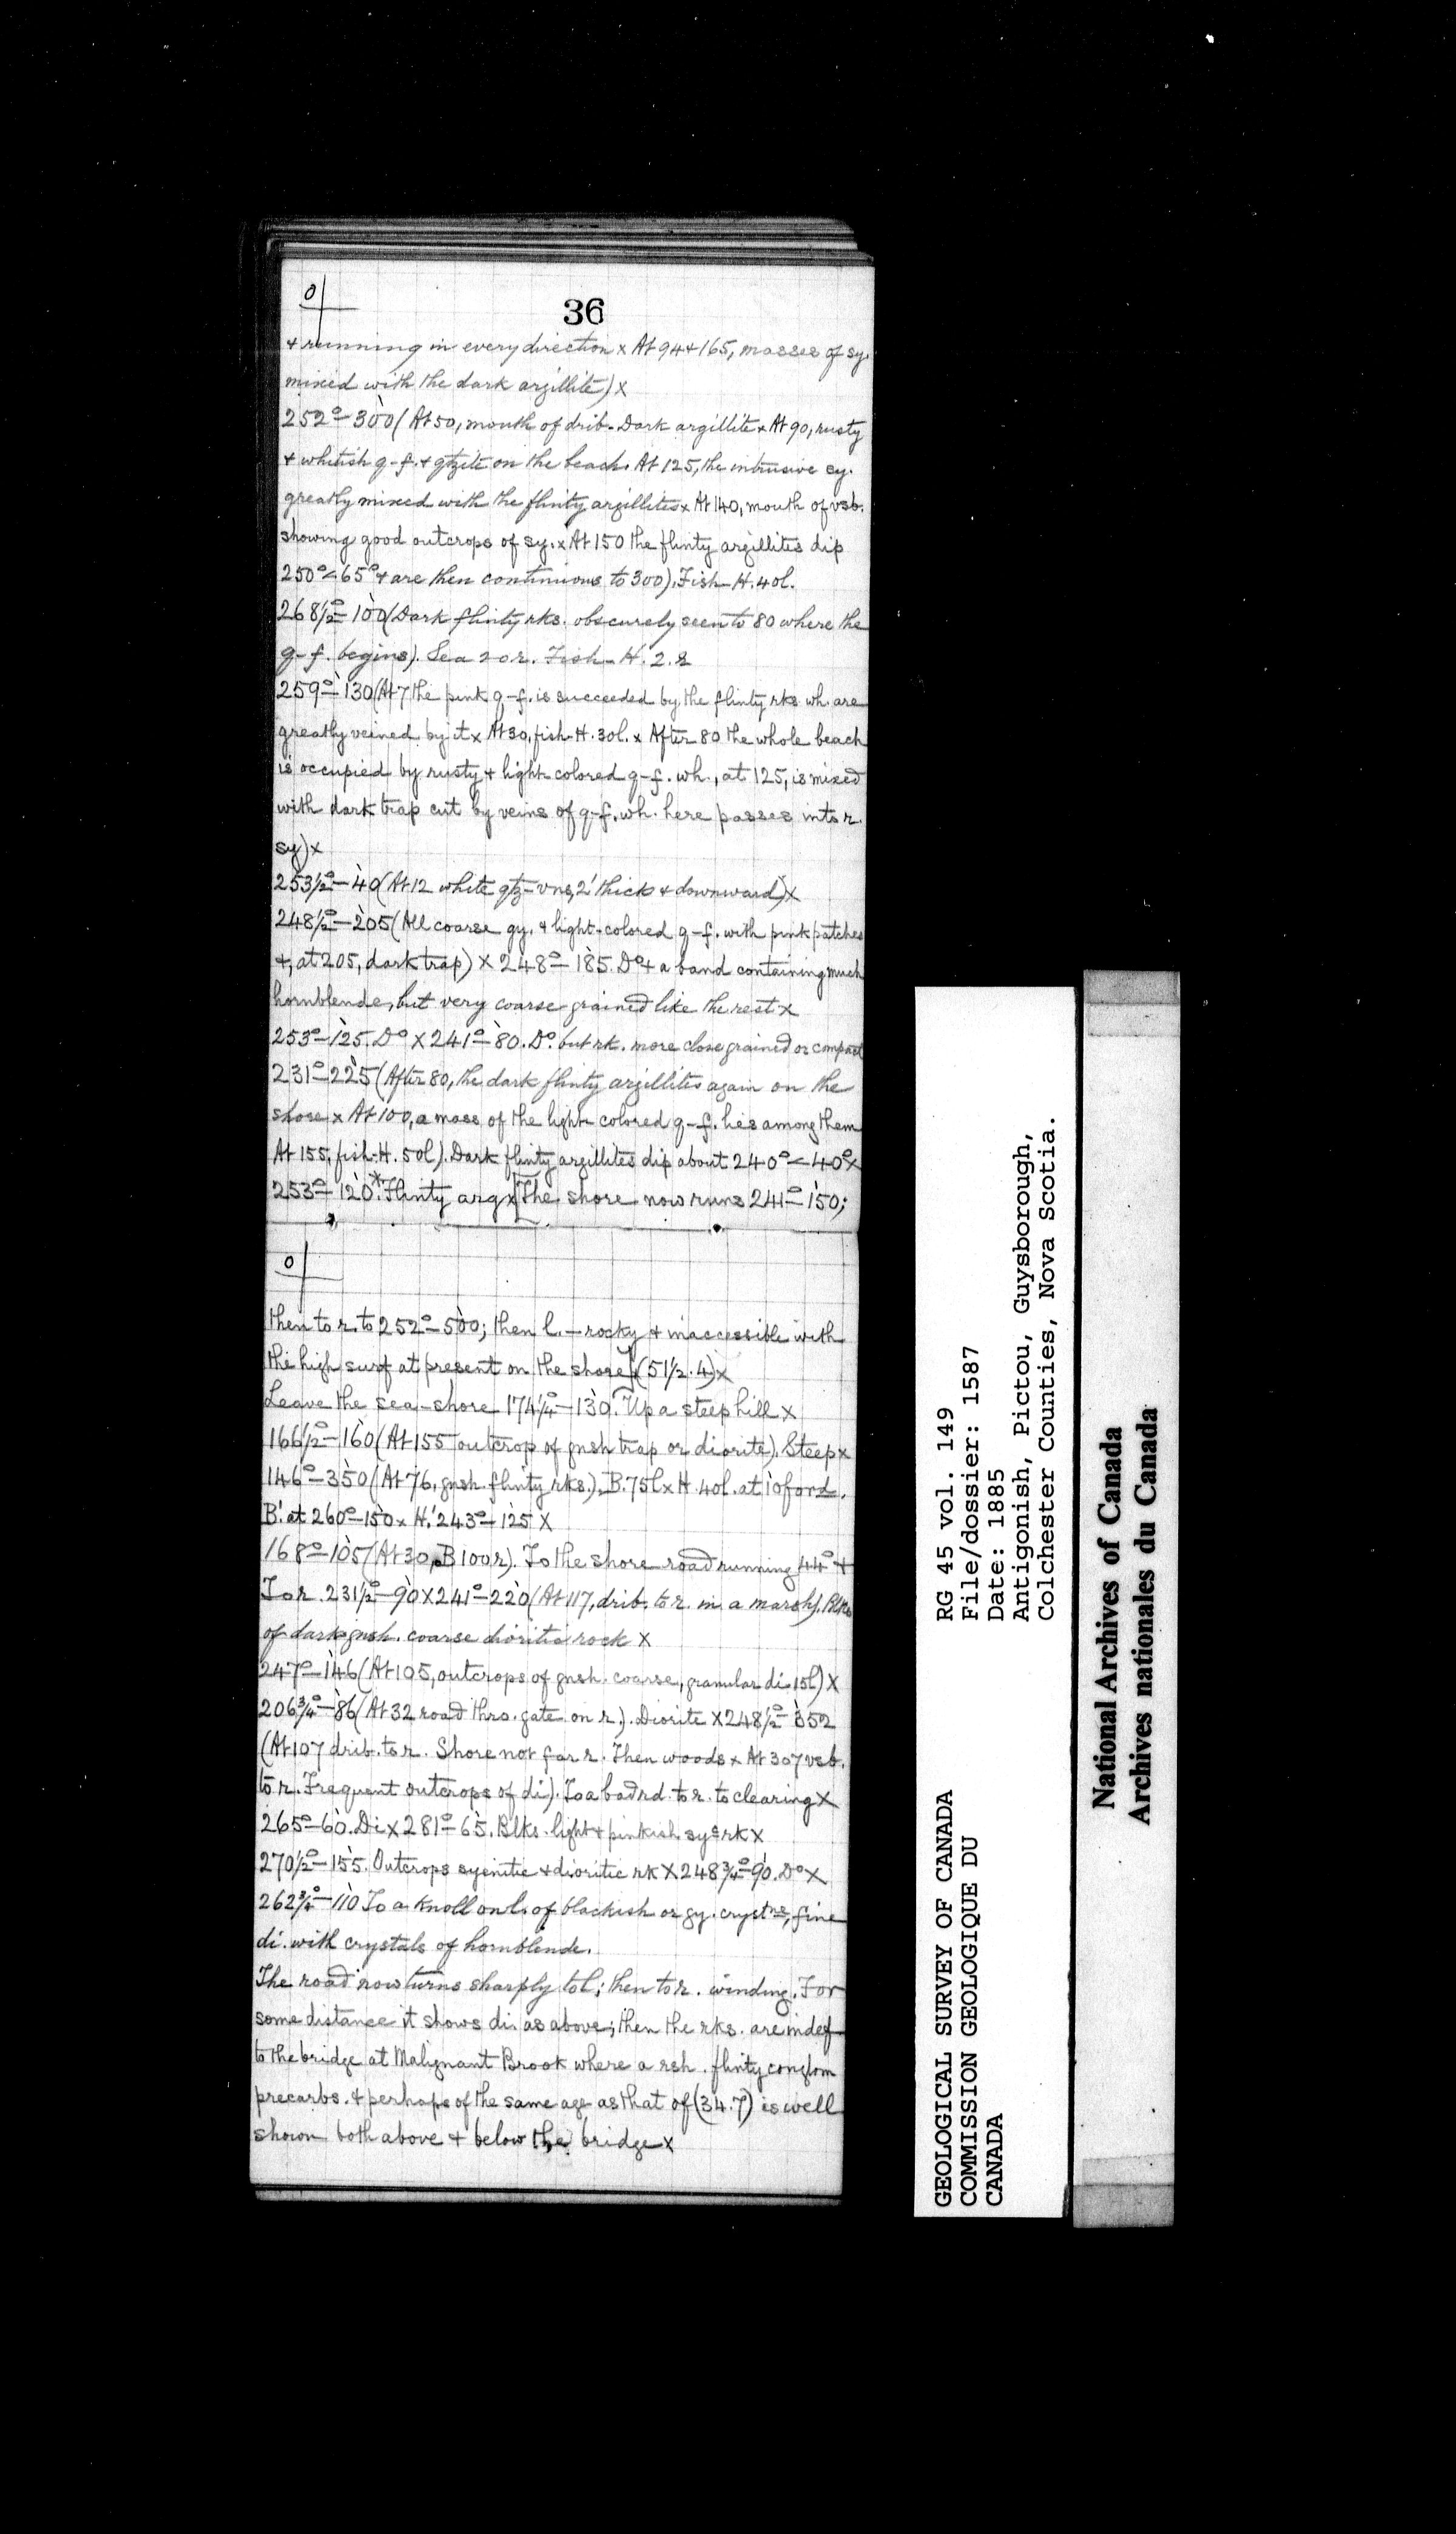 0
36
+ running in every direction x At 94+165, masses of sy.
mixed with the dark argillite) x
252°-300 (At 50, mouth of drib. Dark argillite x At 90, rusty
+ whitish q-f. + qtzite on the beach. At 125, the intrusive sy.
greatly mixed with the flinty argillites x At 140, mouth of vsb.
showing good outcrops of sy. x At 150 the flinty argillites dip
250°<65° + are then continuous to 300). Fish-H. 40l.
268½°-100 (Dark flinty rks. obscurely seen to 80 where the
q-f. begins). Sea 20r. Fish-H. 2.r
259°-130 (At 7 the pink q-f. is succeeded by the flinty rks wh. are
greatly veined by it x At 30, fish-H. 30l. x After 80 the whole beach
is occupied by rusty + light-colored q-f. wh., at 125, is mixed
with dark trap cut by veins of q-f. wh. here passes into r.
sy) x
253½°-40 (At 12 white qtz-vns, 2' thick + downward) x
248½°-205 (All coarse gy. + light-colored q-f. with pink patches
+, at 205, dark trap) x 248°-185. D° + a band containing much
hornblende, but very coarse grained like the rest x
253°-125. D° x 241°-80. D°. but rk. more close grained or compact
231°-225 (After 80, the dark flinty argillites again on the
shore x At 100, a mass of the light colored q-f. lies among them
At 155, fish-H. 50l). Dark flinty argillites dip about 240°<40° x
253°-120.* Flinty arg x [The shore now runs 241°-150;
0
then to r. to 252°-500; then l. – rocky + inaccessible with
the high surf at present on the shore] (51½.4) x
Leave the sea-shore 174¼°-130. Up a steep hill x
166½°-160 (At 155 outcrop of gnsh trap or diorite). Steep x
146°-350 (At 76, gnsh. flinty rks.). B. 75l x H. 40l. at 10 ford.
B'. at 260°-150 x H.' 243°-125 x
168°-105 (At 30, B 100r). To the shore road running 44° +
To r. 231½°-90 x 241°-220 (At 117, drib. to r. in a marsh). Blks
of dark gnsh. coarse dioritic rock x
247°-146 (At 105, outcrops of gnsh. coarse, granular di. 15l) x
206¾°-86 (At 32 road thro. gate on r.). Diorite x 248½°-352
(At 107 drib. to r. Shore not far r. Then woods x At 307 vsb.
to r. Frequent outcrops of di). To a bad rd. to r. to clearing x
265°-60. Di x 281°-65. Blks. light + pinkish sy rk x
270½°-155. Outcrops syenitic + dioritic rk x 248¾°-90. D° x
262¾°-110 To a knoll on l. of blackish or gy. crystne, fine
di. with crystals of hornblende.
The road now turns sharply to l; then to r. winding. For
some distance it shows di. as above; then the rks. are indef
to the bridge at Malignant Brook where a rsh. flinty conglom
precarbs. + perhaps of the same age as that of (34.7) is well
shown both above + below the bridge x
GEOLOGICAL SURVEY OF CANADA
COMMISSION GEOLOGIQUE DU
CANADA
RG 45 vol. 149
File/dossier: 1587
Date: 1885
Antigonish, Pictou, Guysborough,
Colchester Counties, Nova Scotia.
National Archives of Canada
Archives nationales du Canada